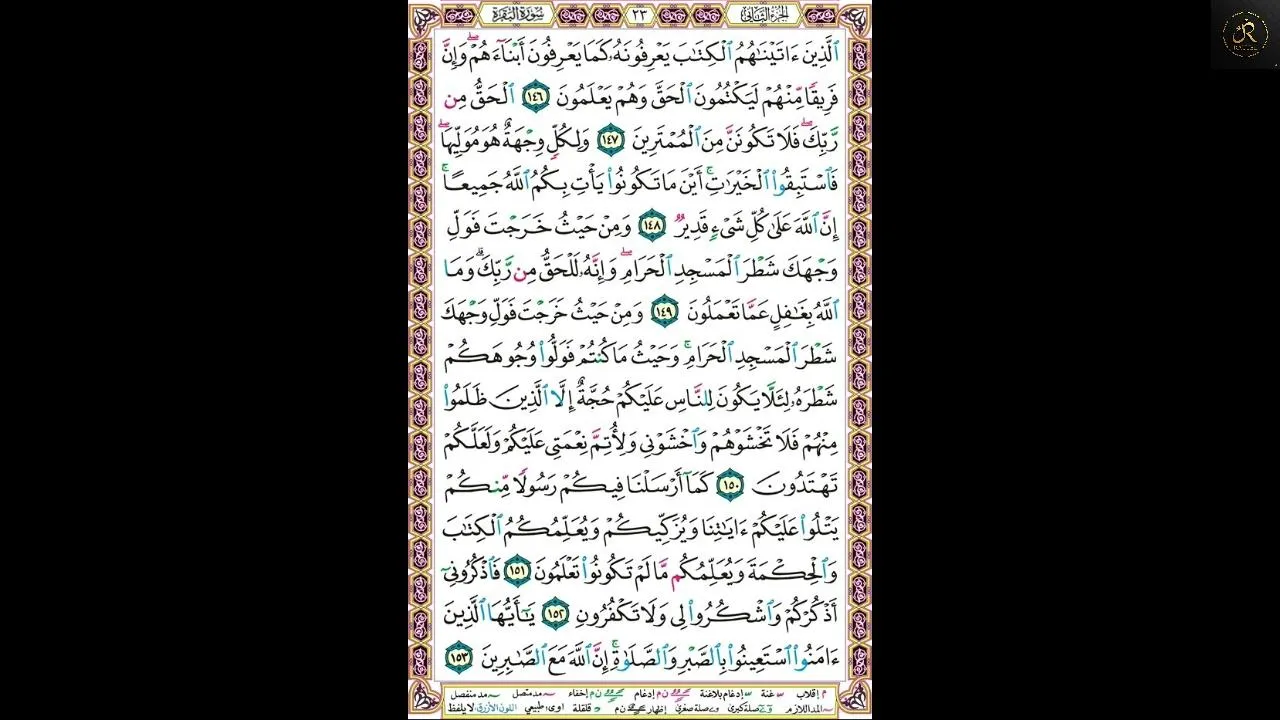 الجزء الثاني ٢٣ سورة البقرة
ٱلَّذِينَ ءَاتَيۡنَٰهُمُ ٱلۡكِتَٰبَ يَعۡرِفُونَهُۥ كَمَا يَعۡرِفُونَ أَبۡنَآءَهُمۡۖ وَإِنَّ
فَرِيقٗا مِّنۡهُمۡ لَيَكۡتُمُونَ ٱلۡحَقَّ وَهُمۡ يَعۡلَمُونَ ١٤٦ ٱلۡحَقُّ مِن
رَّبِّكَۖ فَلَا تَكُونَنَّ مِنَ ٱلۡمُمۡتَرِينَ ١٤٧ وَلِكُلّٖ وِجۡهَةٌ هُوَ مُوَلِّيهَاۖ
فَٱسۡتَبِقُواْ ٱلۡخَيۡرَٰتِۚ أَيۡنَ مَا تَكُونُواْ يَأۡتِ بِكُمُ ٱللَّهُ جَمِيعًاۚ
إِنَّ ٱللَّهَ عَلَىٰ كُلِّ شَيۡءٖ قَدِيرٞ ١٤٨ وَمِنۡ حَيۡثُ خَرَجۡتَ فَوَلِّ
وَجۡهَكَ شَطۡرَ ٱلۡمَسۡجِدِ ٱلۡحَرَامِۖ وَإِنَّهُۥ لَلۡحَقُّ مِن رَّبِّكَۗ وَمَا
ٱللَّهُ بِغَٰفِلٍ عَمَّا تَعۡمَلُونَ ١٤٩ وَمِنۡ حَيۡثُ خَرَجۡتَ فَوَلِّ وَجۡهَكَ
شَطۡرَ ٱلۡمَسۡجِدِ ٱلۡحَرَامِۚ وَحَيۡثُ مَا كُنتُمۡ فَوَلُّواْ وُجُوهَكُمۡ
شَطۡرَهُۥ لِئَلَّا يَكُونَ لِلنَّاسِ عَلَيۡكُمۡ حُجَّةٌ إِلَّا ٱلَّذِينَ ظَلَمُواْ
مِنۡهُمۡ فَلَا تَخۡشَوۡهُمۡ وَٱخۡشَوۡنِي وَلِأُتِمَّ نِعۡمَتِي عَلَيۡكُمۡ وَلَعَلَّكُمۡ
تَهۡتَدُونَ ١٥٠ كَمَآ أَرۡسَلۡنَا فِيكُمۡ رَسُولٗا مِّنكُمۡ
يَتۡلُواْ عَلَيۡكُمۡ ءَايَٰتِنَا وَيُزَكِّيكُمۡ وَيُعَلِّمُكُمُ ٱلۡكِتَٰبَ
وَٱلۡحِكۡمَةَ وَيُعَلِّمُكُم مَّا لَمۡ تَكُونُواْ تَعۡلَمُونَ ١٥١ فَٱذۡكُرُونِيٓ
أَذۡكُرۡكُمۡ وَٱشۡكُرُواْ لِي وَلَا تَكۡفُرُونِ ١٥٢ يَٰٓأَيُّهَا ٱلَّذِينَ
ءَامَنُواْ ٱسۡتَعِينُواْ بِٱلصَّبۡرِ وَٱلصَّلَوٰةِۚ إِنَّ ٱللَّهَ مَعَ ٱلصَّٰبِرِينَ ١٥٣
م إقلاب غنة إدغام بلاغنة ن م إدغام ن م إخفاء مد متصل مد منفصل
المد اللازم صلة كبرى صلة صغرى إظهار ن م قلقلة اوى: طبيعي اللون الأزرق لا يلفظ